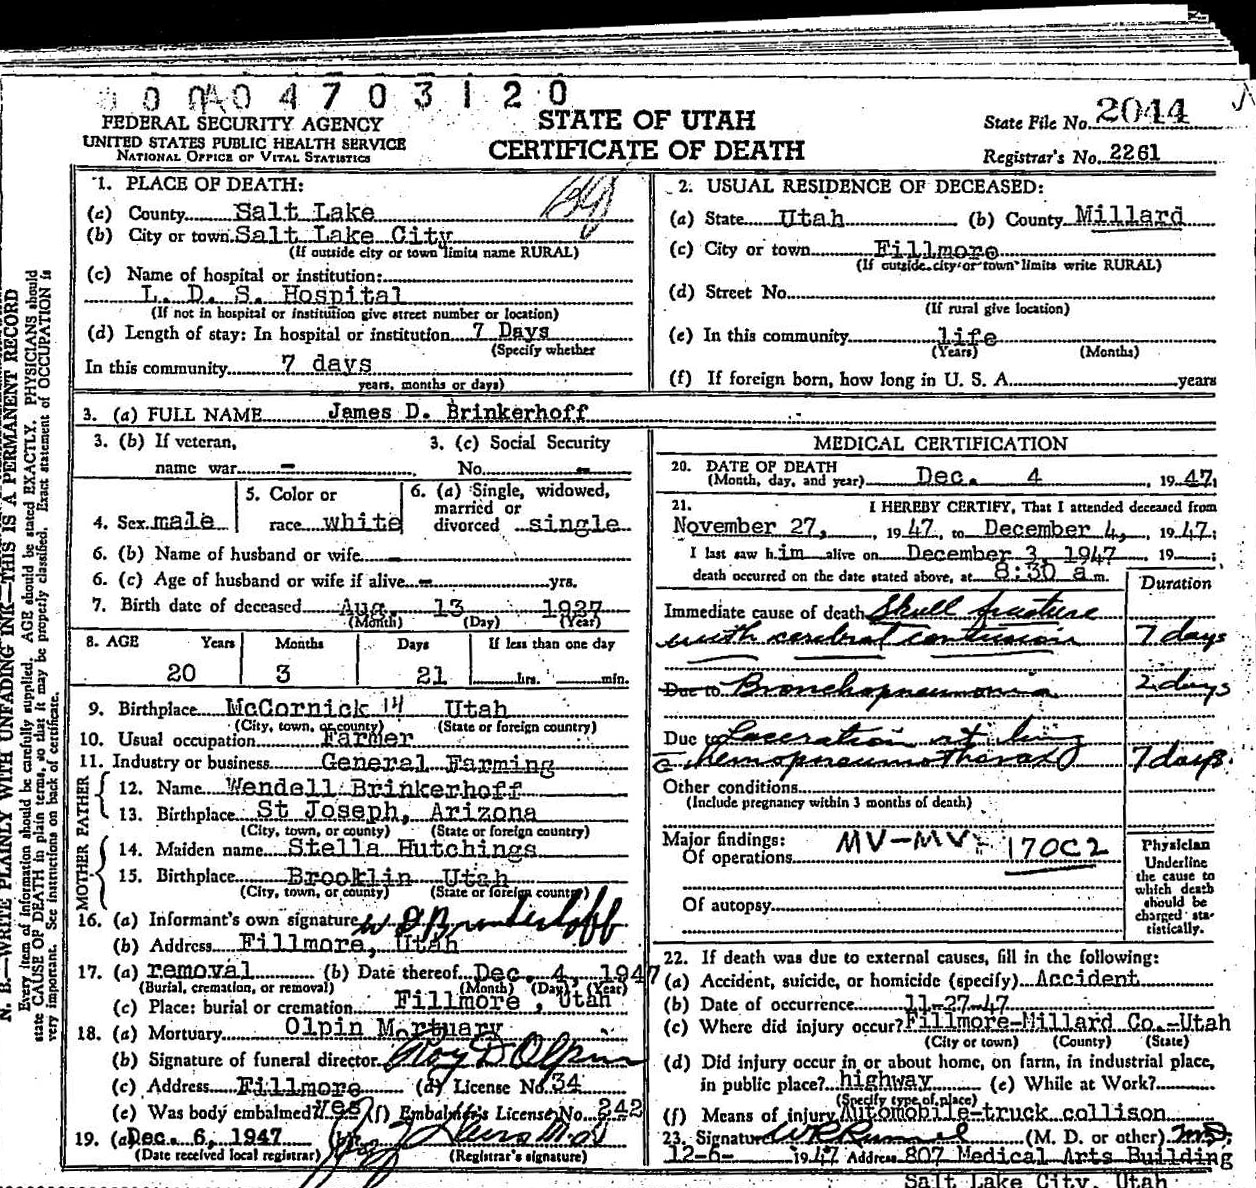 0 0 0 4 7 0 3 1 2 0
FEDERAL SECURITY AGENCY
UNITED STATES PUBLIC HEALTH SERVICE
NATIONAL OFFICE OF VITAL STATISTICS
STATE OF UTAH
CERTIFICATE OF DEATH
State File No. 2044
Registrar's No. 2261
N. B.—WRITE PLAINLY WITH UNFADING INK—THIS IS A PERMANENT RECORD
Every item of information should be carefully supplied. AGE should be stated EXACTLY. PHYSICIANS should
state CAUSE OF DEATH in plain terms, so that it may be properly classified. Exact statement of OCCUPATION is
very important. See instructions on back of certificate.
1. PLACE OF DEATH:
(a) County Salt Lake
(b) City or town Salt Lake City
(If outside city or town limits name RURAL)
(c) Name of hospital or institution:
L. D. S. Hospital
(If not in hospital or institution give street number or location)
(d) Length of stay: In hospital or institution 7 Days
(Specify whether
In this community 7 days
years, months or days)
2. USUAL RESIDENCE OF DECEASED:
(a) State Utah (b) County Millard
(c) City or town Fillmore
(If outside city or town limits write RURAL)
(d) Street No.
(If rural give location)
(e) In this community life
(Years) (Months)
(f) If foreign born, how long in U. S. A. years
3. (a) FULL NAME James D. Brinkerhoff
3. (b) If veteran,
name war –
3. (c) Social Security
No. –
4. Sex male
5. Color or
race white
6. (a) Single, widowed,
married or
divorced single
6. (b) Name of husband or wife –
6. (c) Age of husband or wife if alive – yrs.
7. Birth date of deceased Aug. 13 1927
(Month) (Day) (Year)
8. AGE Years Months Days If less than one day
20 3 21 hrs. min.
9. Birthplace McCornick 14 Utah
(City, town, or county) (State or foreign country)
10. Usual occupation Farmer
11. Industry or business General Farming
FATHER
12. Name Wendell Brinkerhoff
13. Birthplace St Joseph, Arizona
(City, town, or county) (State or foreign country)
MOTHER
14. Maiden name Stella Hutchings
15. Birthplace Brooklin Utah
(City, town, or county) (State or foreign country)
16. (a) Informant's own signature W D Brinkerhoff
(b) Address Fillmore, Utah
17. (a) removal (b) Date thereof Dec. 4, 1947
(Burial, cremation, or removal) (Month) (Day) (Year)
(c) Place: burial or cremation Fillmore, Utah
18. (a) Mortuary Olpin Mortuary
(b) Signature of funeral director Roy D Olpin
(c) Address Fillmore (d) License No. 34
(e) Was body embalmed? yes (f) Embalmer's License No. 242
19. (a) Dec. 6, 1947 (b)
(Date received local registrar) (Registrar's signature)
MEDICAL CERTIFICATION
20. DATE OF DEATH
(Month, day, and year) Dec. 4, 1947;
21. I HEREBY CERTIFY, That I attended deceased from
November 27, 1947, to December 4, 1947;
I last saw him alive on December 3, 1947 19 ;
death occurred on the date stated above, at 8:30 a m.
Duration
Immediate cause of death Skull fracture
with cerebral contusion 7 days
Due to Bronchopneumonia 2 days
Due to Laceration of lung
c̄ Hemopneumothorax 7 days.
Other conditions
(Include pregnancy within 3 months of death)
Major findings:
Of operations MV-MV- 170C2
Of autopsy
Physician
Underline
the cause to
which death
should be
charged sta-
tistically.
22. If death was due to external causes, fill in the following:
(a) Accident, suicide, or homicide (specify) Accident
(b) Date of occurrence 11-27-47
(c) Where did injury occur? Fillmore-Millard Co.-Utah
(City or town) (County) (State)
(d) Did injury occur in or about home, on farm, in industrial place,
in public place? highway (e) While at Work?
(Specify type of place)
(f) Means of injury Automobile-truck collison
23. Signature (M. D. or other) M.D.
12-6- 1947 Address 807 Medical Arts Building
Salt Lake City, Utah